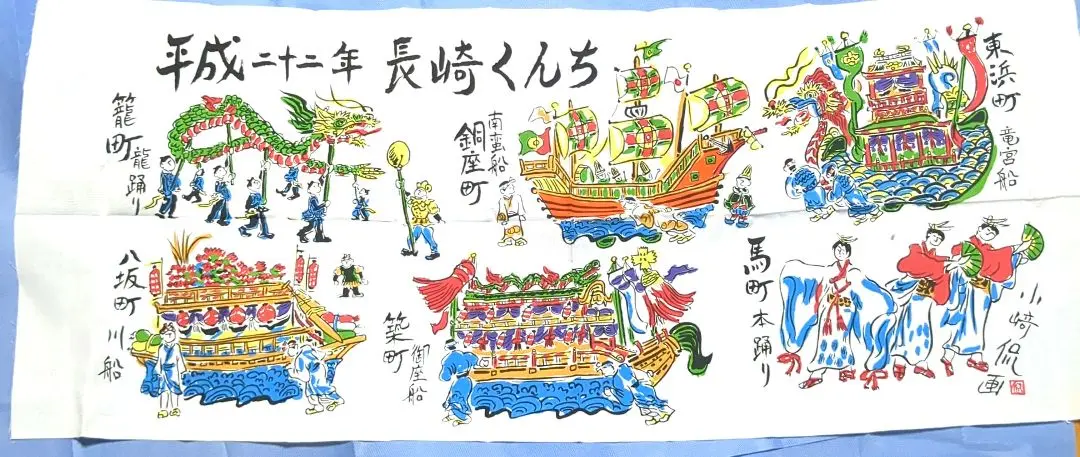 平成二十二年 長崎くんち
籠町
龍踊り
銅座町
南蛮船
東浜町
竜宮船
八坂町
川船
築町
御座船
馬町
本踊り
小崎侃画
侃